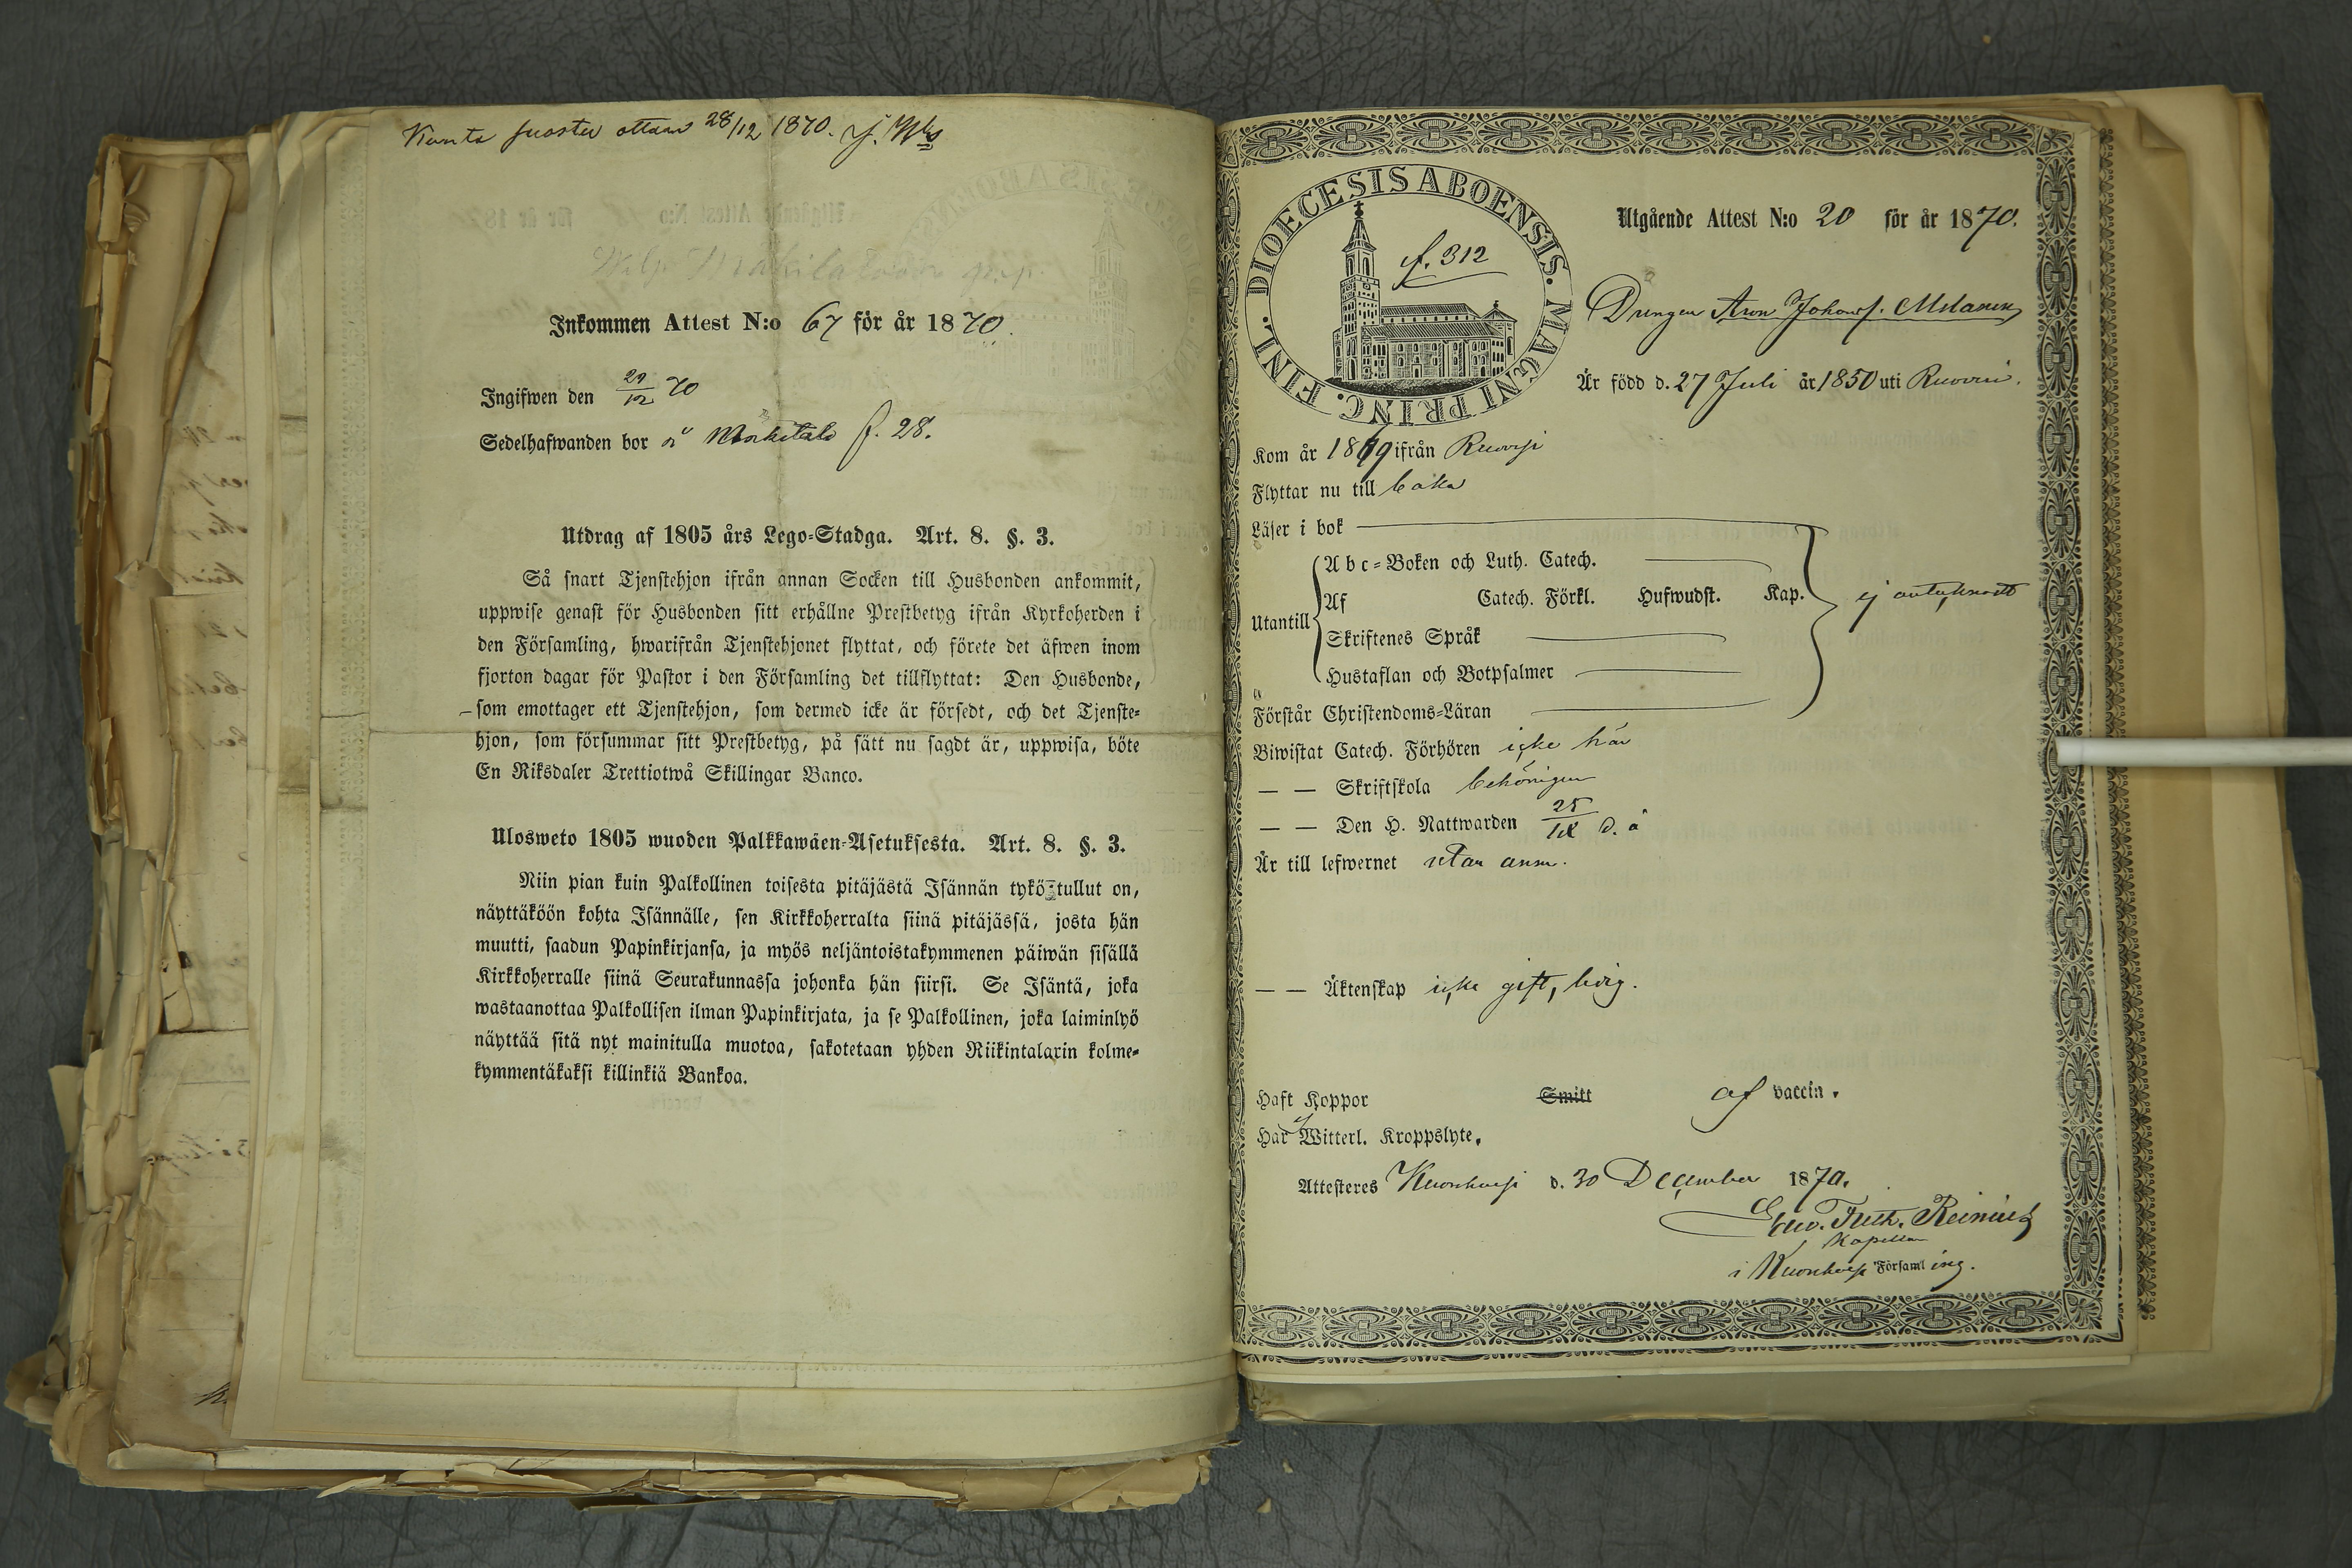 Kunta suostu ottaan 28/12 1870. J.
Inkommen Attest N:o 67 för år 1870.
Ingifwen den 29/12 70
Sedelhafwanden bor å f. 28.
Utdrag af 1805 års Lego-Stadga. Art. 8. §. 3.
Så snart Tjenstehjon ifrån annan Socken till Husbonden ankommit,
uppwise genast för Husbonden sitt erhållne Prestbetyg ifrån Kyrkoherden i
den Församling, hwarifrån Tjenstehjonet flyttat, och förete det äfwen inom
fjorton dagar för Pastor i den Församling det tillflyttat: Den Husbonde,
som emottager ett Tjenstehjon, som dermed icke är försedt, och det Tjenste-
hjon, som försummar sitt Prestbetyg, på sätt nu sagdt är, uppwisa, böte
En Riksdaler Trettiotwå Skillingar Banco.
Ulosweto 1805 wuoden Palkkawäen-Asetuksesta. Art. 8. §. 3.
Niin pian kuin Palkollinen toisesta pitäjästä Isännän tykö-tullut on,
näyttäköön kohta Isännälle, sen Kirkkoherralta siinä pitäjässä, josta hän
muutti, saadun Papinkirjansa, ja myös neljäntoistakymmenen päiwän sisällä
Kirkkoherralle siinä Seurakunnassa johonka hän siirsi. Se Isäntä, joka
wastaanottaa Palkollisen ilman Papinkirjata, ja se Palkollinen, joka laiminlyö
näyttää sitä nyt mainitulla muotoa, sakotetaan yhden Riikintalarin kolme-
kymmentäkaksi killinkiä Bankoa.
DIOECESIS ABOENSIS. MAGNI PRINC. FINL.
f. 312
Utgående Attest N:o 20 för år 1870.
Drängen Aron Johansf.
Är född d. 27 Juli år 1850 uti Ruovesi.
Kom år 1869 ifrån Ruovesi
Flyttar nu till baka
Läser i bok
Utantill
Abc-Boken och Luth. Catech.
Af Catech. Förkl. Hufwudst. Kap.
Skriftenes Språk
Hustaflan och Botpsalmer
ej antecknadt
Förstår Christendoms-Läran
Biwistat Catech. Förhören icke här
— — Skriftskola behörigen
— — Den H. Nattwarden 25/12 d. å
Är till lefwernet utan anm.
— — Äktenskap icke gift, ledig.
Haft Koppor Smitt af vaccin.
Har ej Witterl. Kroppslyte.
Attesteres Kuorehvesi d. 30 December 1870.
Reinius
Kapellan
i Kuorehvesi Församling.